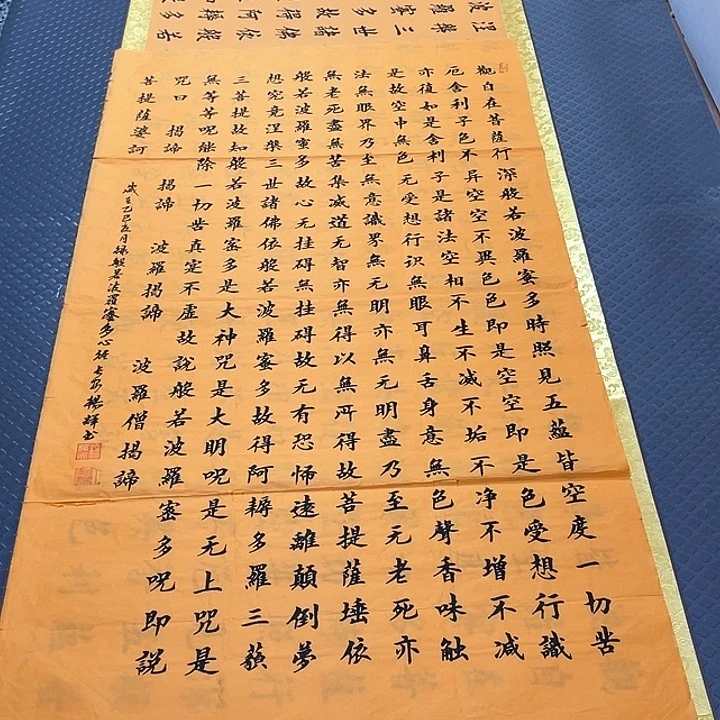 觀自在菩薩行深般若波羅蜜多時照見五蘊皆空度一切苦
厄舍利子色不异空空不異色色即是空空即是色受想行識
亦復如是舍利子是諸法空相不生不滅不垢不净不增不减
是故空中無色无受想行识無眼耳鼻舌身意無色聲香味触
法無眼界乃至無意識界無无明亦無无明盡乃至无老死亦
無老死盡無苦集滅道无智亦無得以無所得故菩提薩埵依
般若波羅蜜多故心无挂碍無挂碍故无有恐怖遠離顛倒夢
想究竟涅槃三世諸佛依般若波羅蜜多故得阿耨多羅三藐
三菩提故知般若波羅蜜多是大神咒是大明呪是无上咒是
無等等呪能除一切苦真实不虚故説般若波羅蜜多呪即説
咒曰 揭諦 揭諦 波羅揭諦 波羅僧揭諦
菩提薩婆訶
乙巳五月録般若波羅蜜多心經 楊輝书